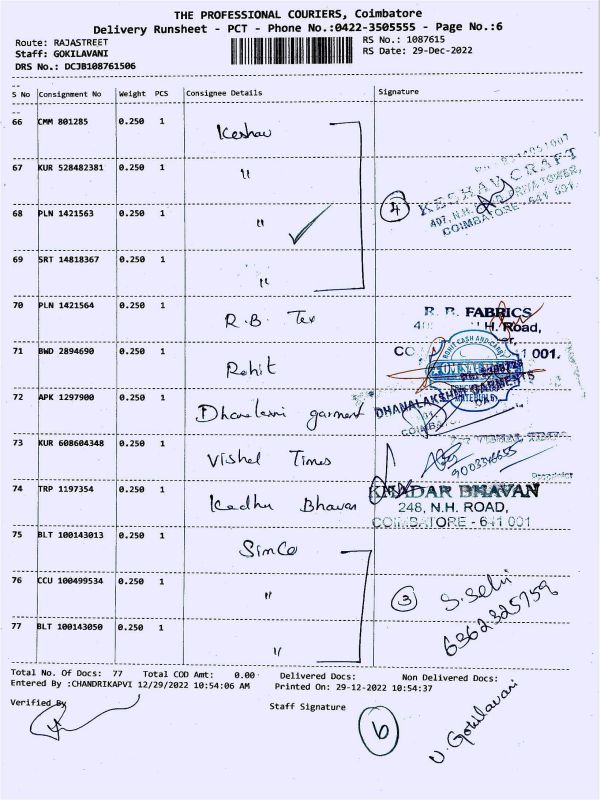 THE PROFESSIONAL COURIERS, Coimbatore
Delivery Runsheet - PCT - Phone No.:0422-3505555 - Page No.:6
Route: RAJASTREET
RS No.: 1087615
Staff: GOKILAVANI
RS Date: 29-Dec-2022
DRS No.: DCJB108761506
S No Consignment No Weight PCS Consignee Details Signature
66 CMM 801285 0.250 1 Keshav
67 KUR 528482381 0.250 1 "
KESHAV CRAFT
68 PLN 1421563 0.250 1 " 4
COIMBATORE - 641 001.
69 SRT 14818367 0.250 1 "
70 PLN 1421564 0.250 1 R.B. Tex
R. B. FABRICS
N.H. Road,
71 BWD 2894690 0.250 1 Rohit
641 001.
72 APK 1297900 0.250 1 Dhanalaxmi garment
DHANALAKSHMI GARMENTS
73 KUR 608604348 0.250 1 Vishal Times
9003346655
Proprietor
74 TRP 1197354 0.250 1 Kadhu Bhavan
KHADAR BHAVAN
248, N.H. ROAD,
COIMBATORE - 641 001
75 BLT 100143013 0.250 1 SimCo
76 CCU 100499534 0.250 1 " 3 S. Selvi
6362325759
77 BLT 100143050 0.250 1 "
Total No. Of Docs: 77 Total COD Amt: 0.00 Delivered Docs: Non Delivered Docs:
Entered By :CHANDRIKAPVI 12/29/2022 10:54:06 AM Printed On: 29-12-2022 10:54:37
Verified By Staff Signature
6
V. Gokilavani